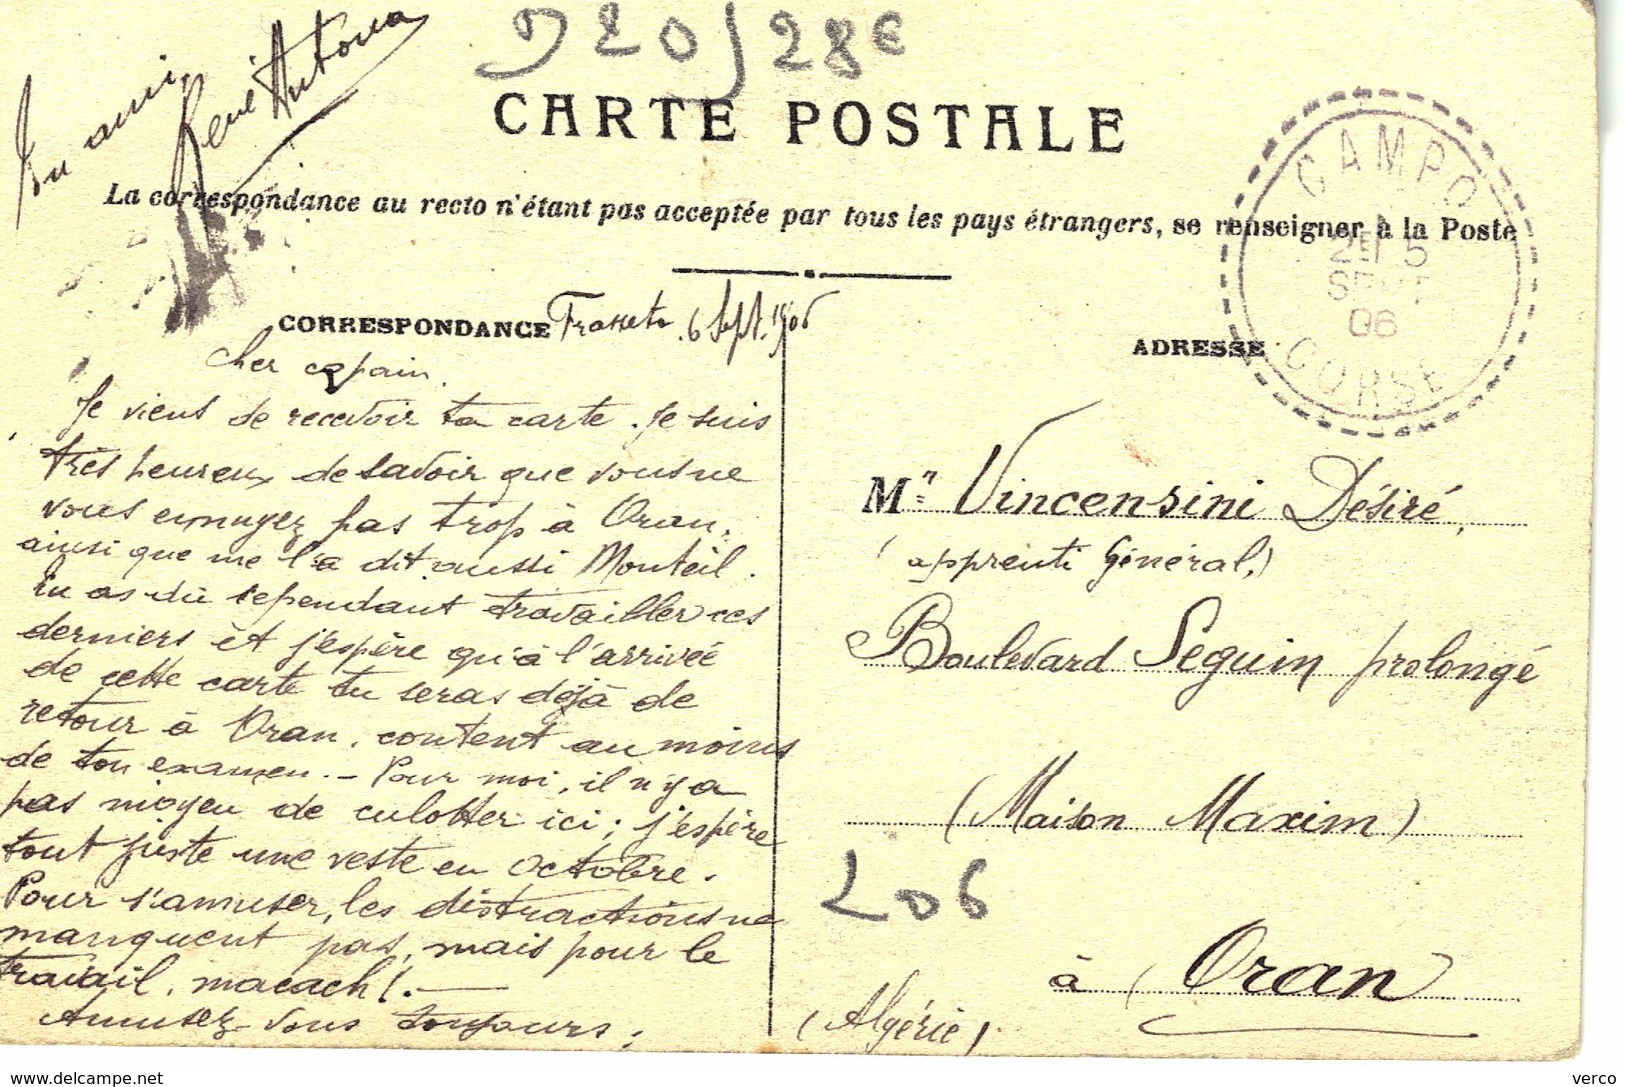 D20/28€
CARTE POSTALE
La correspondance au recto n'étant pas acceptée par tous les pays étrangers, se renseigner à la Poste
CORRESPONDANCE
Frasseto 6 Sept. 1906
Cher copain.
Je viens de recevoir ta carte. Je suis
très heureux de savoir que vous ne
vous ennuyez pas trop à Oran,
ainsi que me l'a dit aussi Monteil.
Tu as dû cependant travailler ces
derniers et j'espère qu'à l'arrivée
de cette carte tu seras déjà de
retour à Oran, content au moins
de ton examen. - Pour moi, il n'y a
pas moyen de culotter ici; j'espère
tout juste une veste en Octobre.
Pour s'amuser, les distractions ne
manquent pas, mais pour le
travail, macach!. —
Amusez-vous toujours;
Ton ami,
René Antona
CAMPO
2E 5
SEPT
06
CORSE
ADRESSE
Mr Vincensini Désiré,
(apprenti Général,)
Boulevard Seguin prolongé
(Maison Maxim)
206
à Oran
(Algérie)
delcampe.net
verco